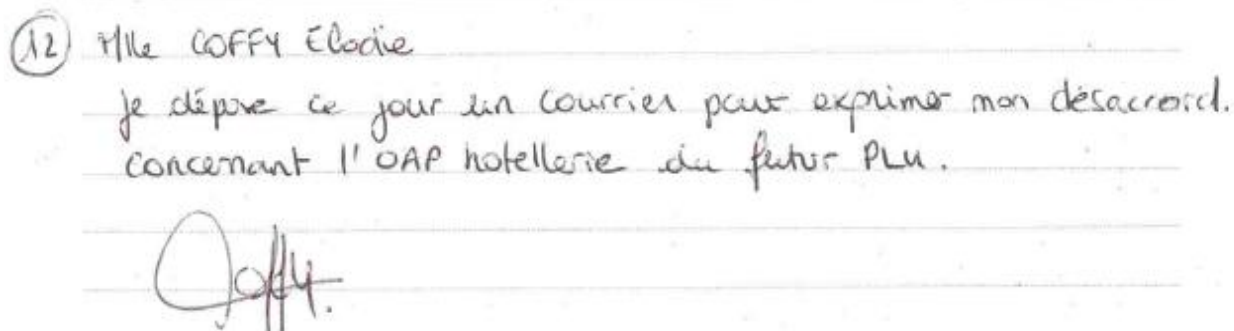 12 Mlle COFFY Elodie
Je dépose ce jour un courrier pour exprimer mon désacroid.
concernant l'OAP hotellerie du futur PLU.
Coffy.